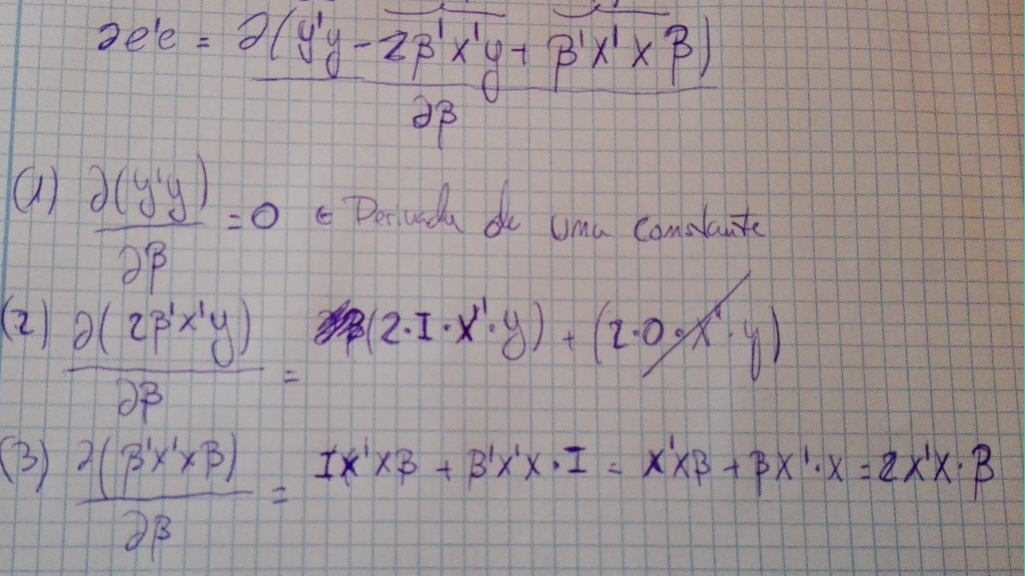 ∂e'e = ∂(y'y - 2β'x'y + β'x'xβ)
∂β
(1) ∂(y'y) = 0 ← Derivada de uma constante
∂β
(2) ∂(2β'x'y) = (2·I·x'·y) + (2·0·x'·y)
∂β
(3) ∂(β'x'xβ) = Ix'xβ + β'x'x·I = x'xβ + βx'·x = 2x'x·β
∂β